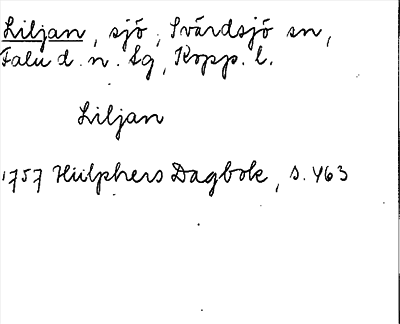 Liljan, sjö, Svärdsjö sn,
Falu d. n. lg, Kopp. l.
Liljan
1757 Hülphers Dagbok, s. 463